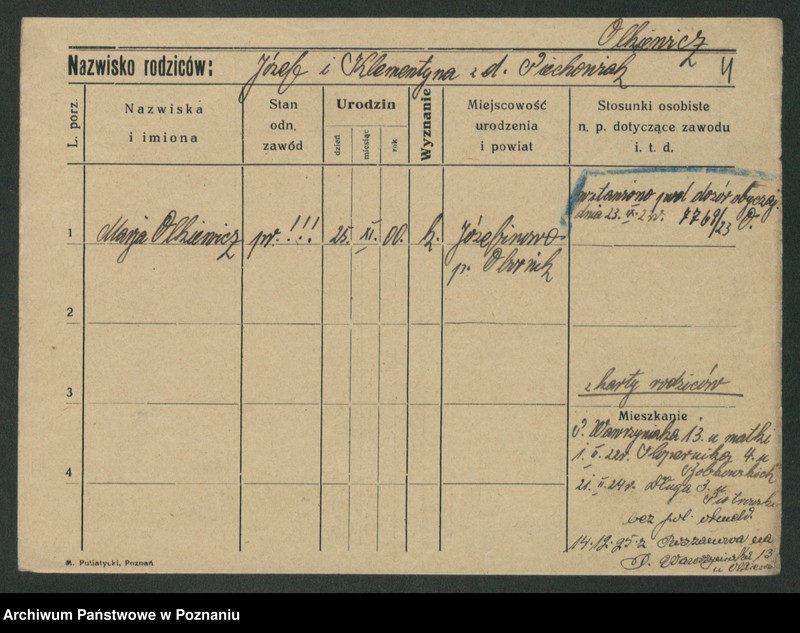 Olkiewicz
Nazwisko rodziców: Józef i Klementyna z d. Piechowiak
L. porz.
Nazwiska
i imiona
Stan
odn.
zawód
Urodzin
dzień
miesiąc
rok
Wyznanie
Miejscowość
urodzenia
i powiat
Stosunki osobiste
n. p. dotyczące zawodu
i. t. d.
1
Marja Olkiewicz
pr. !!!
25. XI. 00.
k.
Józefinowo
p. Obornik
wstawiono pod dozór obyczaj.
dnia 23. 7769/23
2
3
z karty rodziców
Mieszkanie
P. Wawrzyniaka 13. u matki
1. II. 22r. Kopernika 4. u
4
21. II. 24r. Długa 3. u
bez pol.
14.12.25 z
13
M. Putiatycki, Poznań
Archiwum Państwowe w Poznaniu